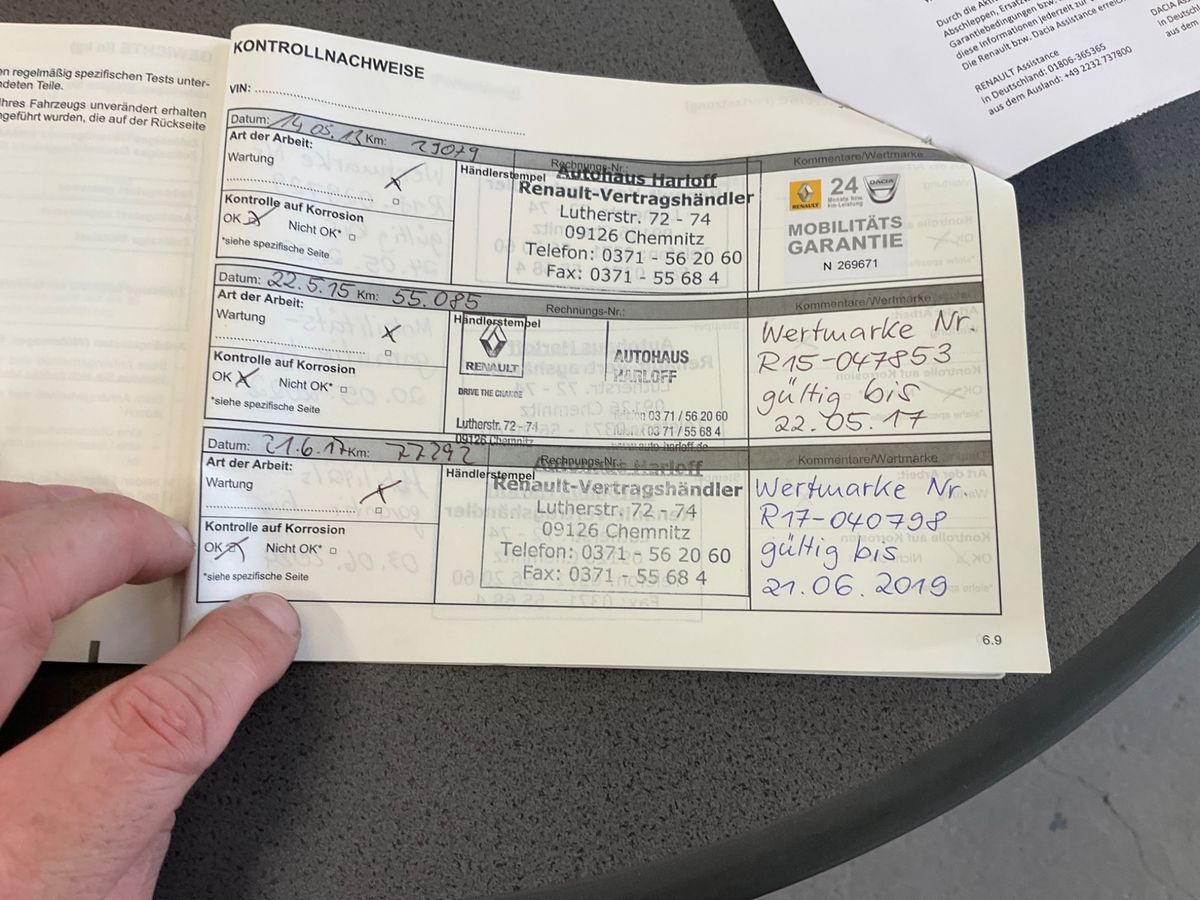 en regelmäßig spezifischen Tests unter-
ndeten Teile.
Ihres Fahrzeugs unverändert erhalten
ngeführt wurden, die auf der Rückseite
Durch die
Abschleppen,
Garantiebedingungen bzw.
diese Informationen jederzeit zur
Die Renault bzw. Dacia Assistance
RENAULT Assistance
in Deutschland: 01806-365365
aus dem Ausland: +49 2232 737800
in Deutsch
aus dem
KONTROLLNACHWEISE
VIN:
Datum: 14.05.13 Km: 29079
Rechnungs-Nr.:
Kommentare/Wertmarke
Art der Arbeit:
Wartung
Kontrolle auf Korrosion
OK Nicht OK*
*siehe spezifische Seite
Händlerstempel
Autohaus Harloff
Renault-Vertragshändler
Lutherstr. 72 - 74
09126 Chemnitz
Telefon: 0371 - 56 20 60
Fax: 0371 - 55 68 4
RENAULT
24
Monats bzw.
km-Leistung
DACIA
MOBILITÄTS
GARANTIE
N 269671
Datum: 22.5.15 Km: 55.085
Rechnungs-Nr.:
Kommentare/Wertmarke
Art der Arbeit:
Wartung
Kontrolle auf Korrosion
OK Nicht OK*
*siehe spezifische Seite
Händlerstempel
RENAULT
DRIVE THE CHANGE
AUTOHAUS
HARLOFF
Lutherstr. 72 - 74
09126 Chemnitz
03 71 / 56 20 60
03 71 / 55 68 4
www.auto-harloff.de
Wertmarke Nr.
R15-047853
gültig bis
22.05.17
Datum: 21.6.17 Km: 77292
Rechnungs-Nr.:
Kommentare/Wertmarke
Art der Arbeit:
Wartung
Kontrolle auf Korrosion
OK Nicht OK*
*siehe spezifische Seite
Händlerstempel
Autohaus Harloff
Renault-Vertragshändler
Lutherstr. 72 - 74
09126 Chemnitz
Telefon: 0371 - 56 20 60
Fax: 0371 - 55 68 4
Wertmarke Nr.
R17-040798
gültig bis
21.06.2019
6.9